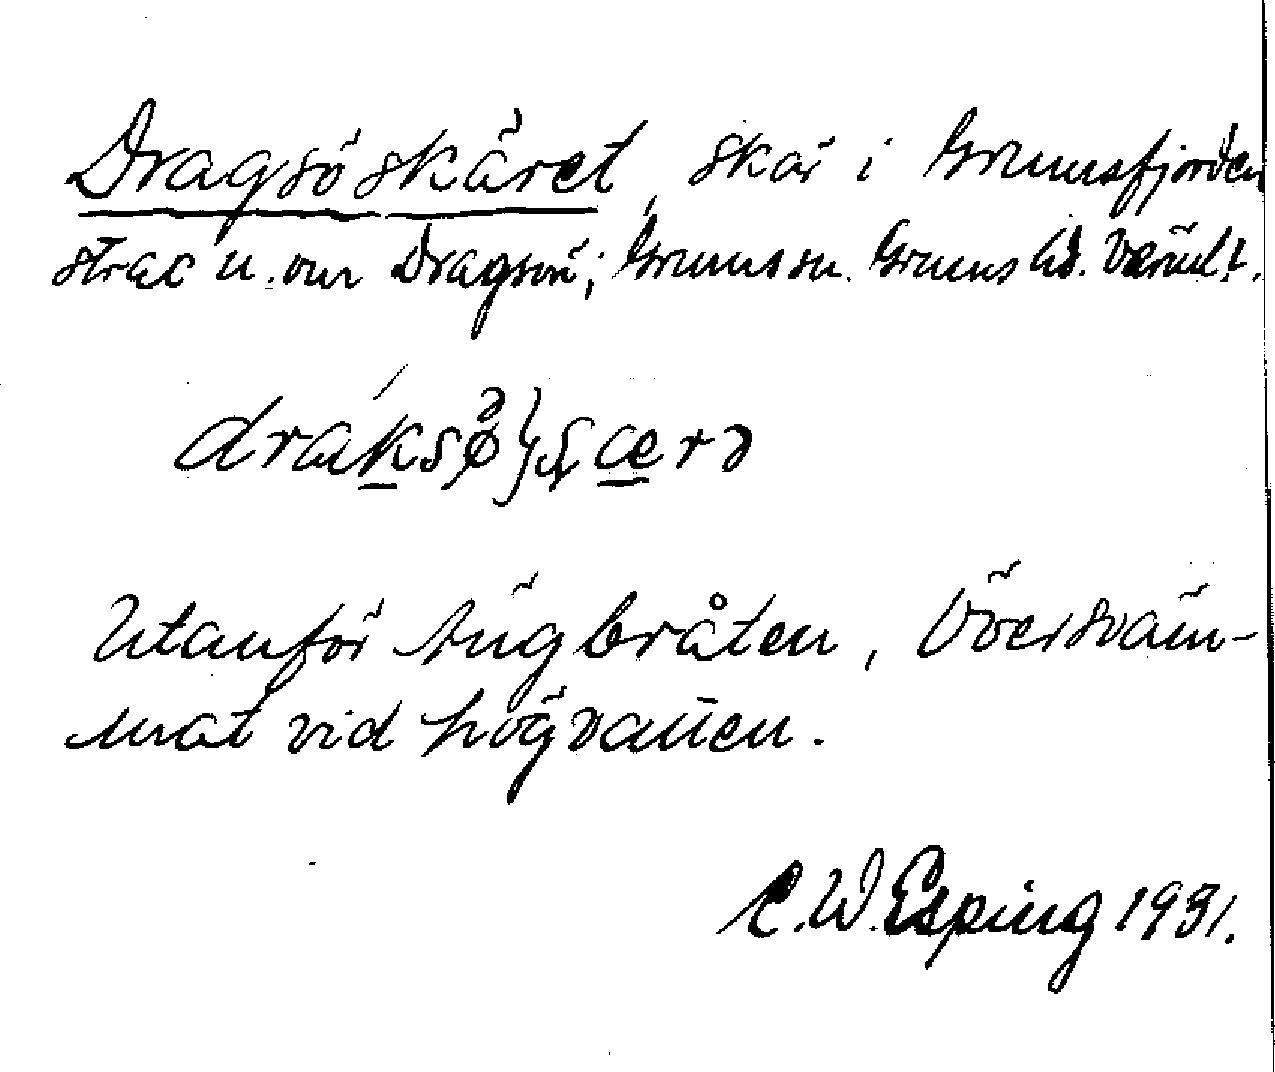 Dragsöskäret, skär i Grumsfjorden
strax n. om Dragsön; Grums sn. Grums hd. Värml.
Utanför Ängbråten, Översväm-
mat vid högvatten.
C. W. Esping 1931.